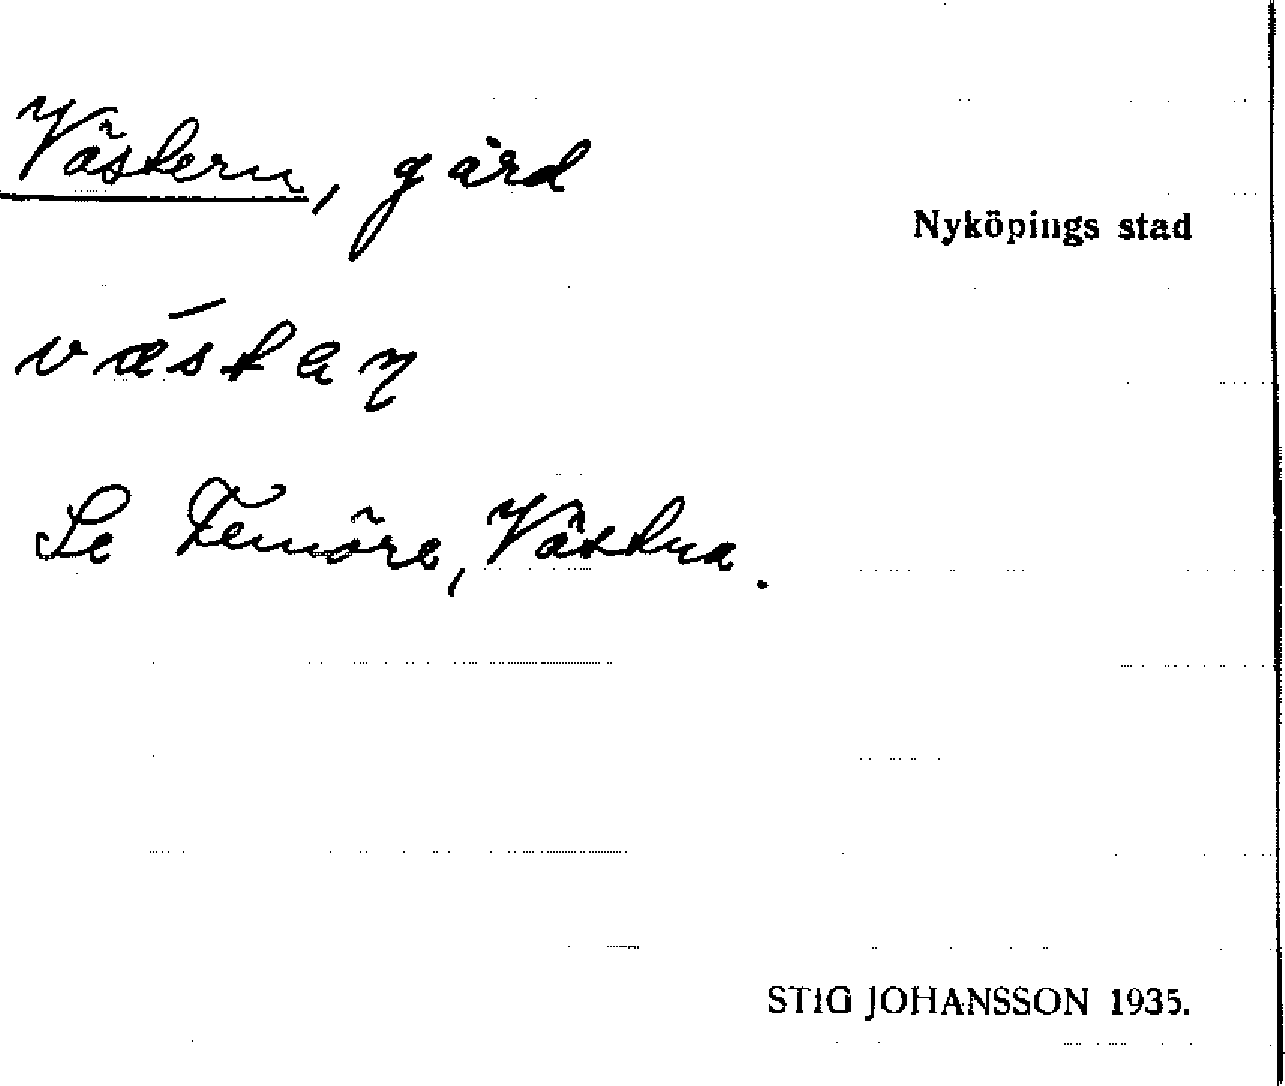 Västern, gård
Nyköpings stad
västaɳ
Se Femöre, Västra.
STIG JOHANSSON 1935.